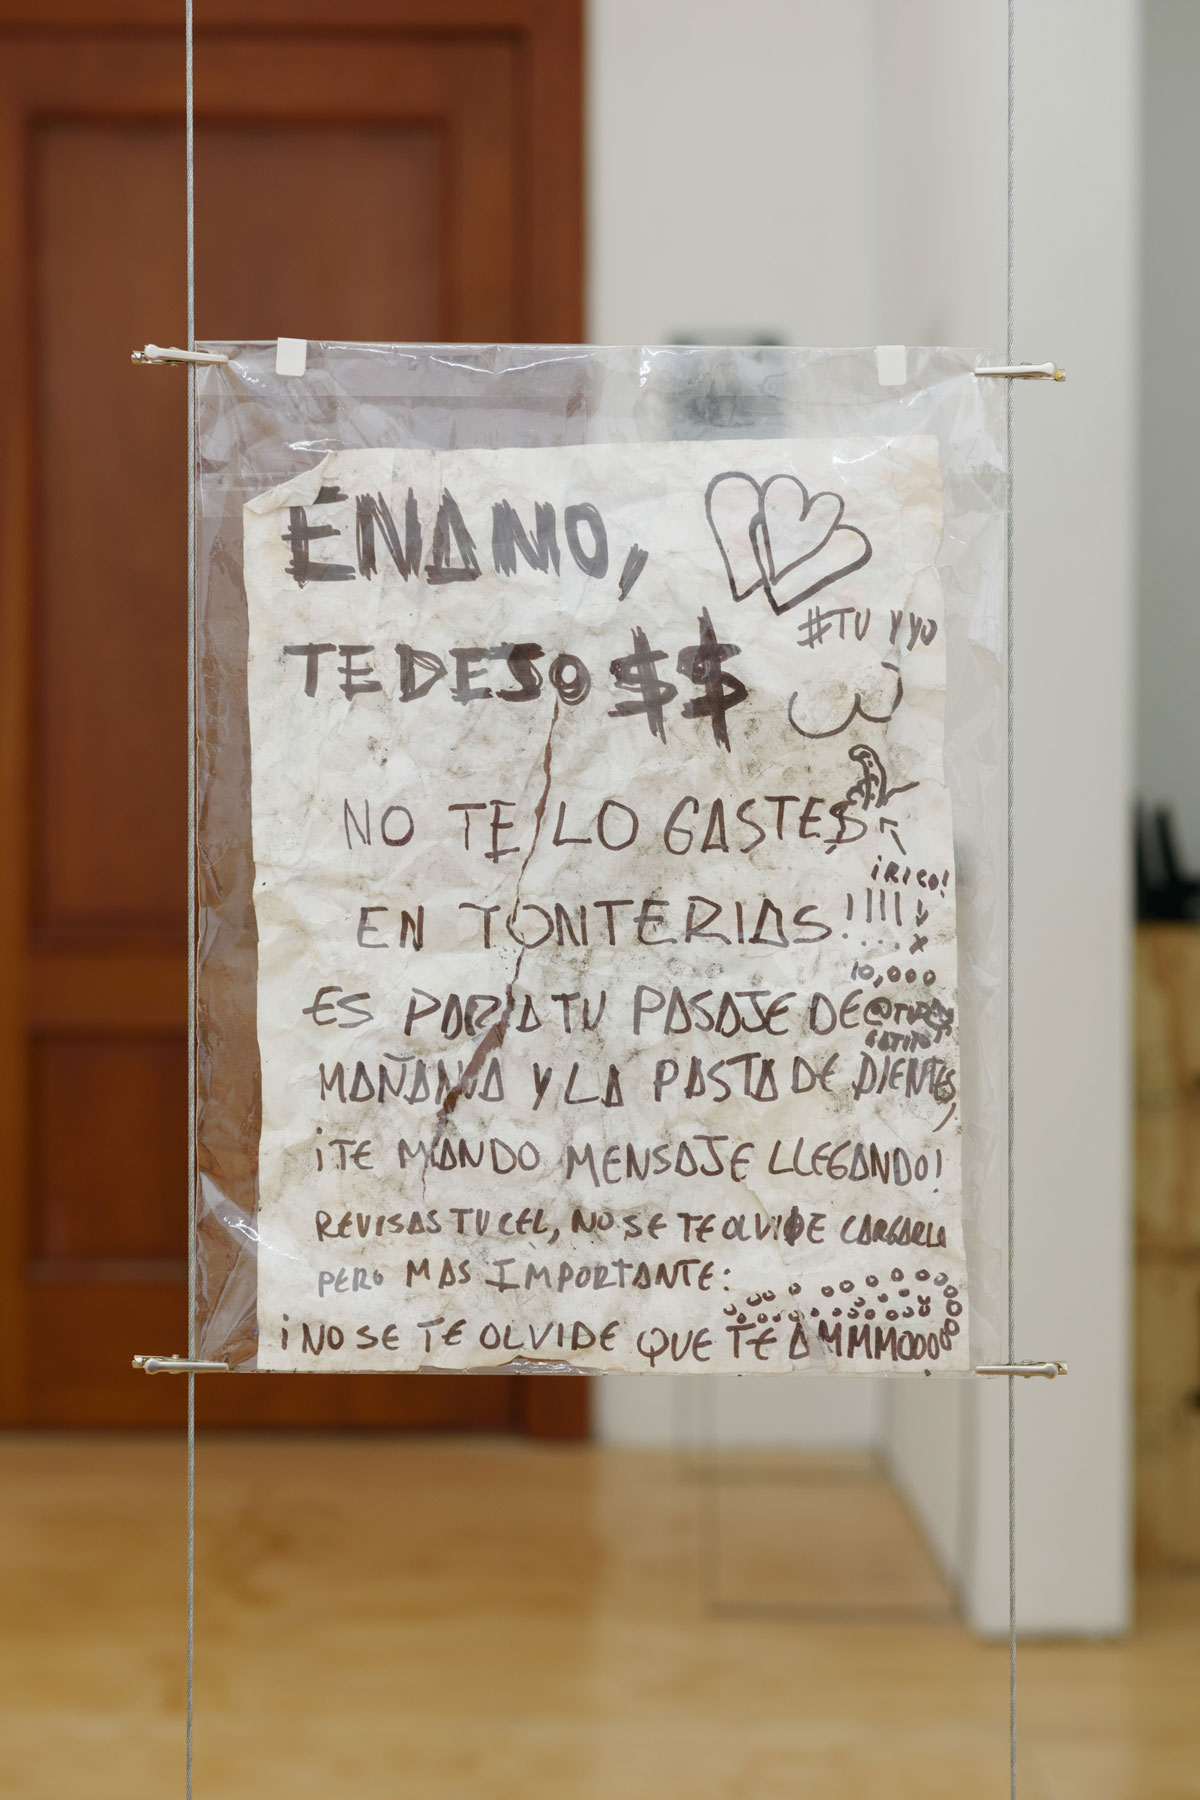 ÉNAMO,
#TU Y YO
TE DESO $$
NO TE LO GASTES
¡RICO!
EN TONTERIAS!!!!!
x
10,000
ES PARA TU PASAJE DE
MAÑANA Y LA PASTA DE DIENTES,
¡TE MANDO MENSAJE LLEGANDO!
REVISAS TU CEL, NO SE TE OLVIDE CARGARLO
PERO MAS IMPORTANTE:
¡NO SE TE OLVIDE QUE TE AMMMOOOOO